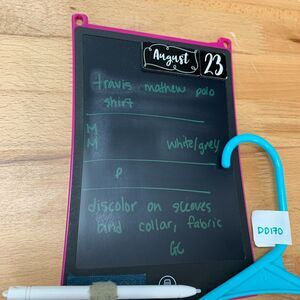 August 23
travis mathew polo
shirt
M
M white/grey
P
discolor on sleeves
and collar, fabric
GC
DD170